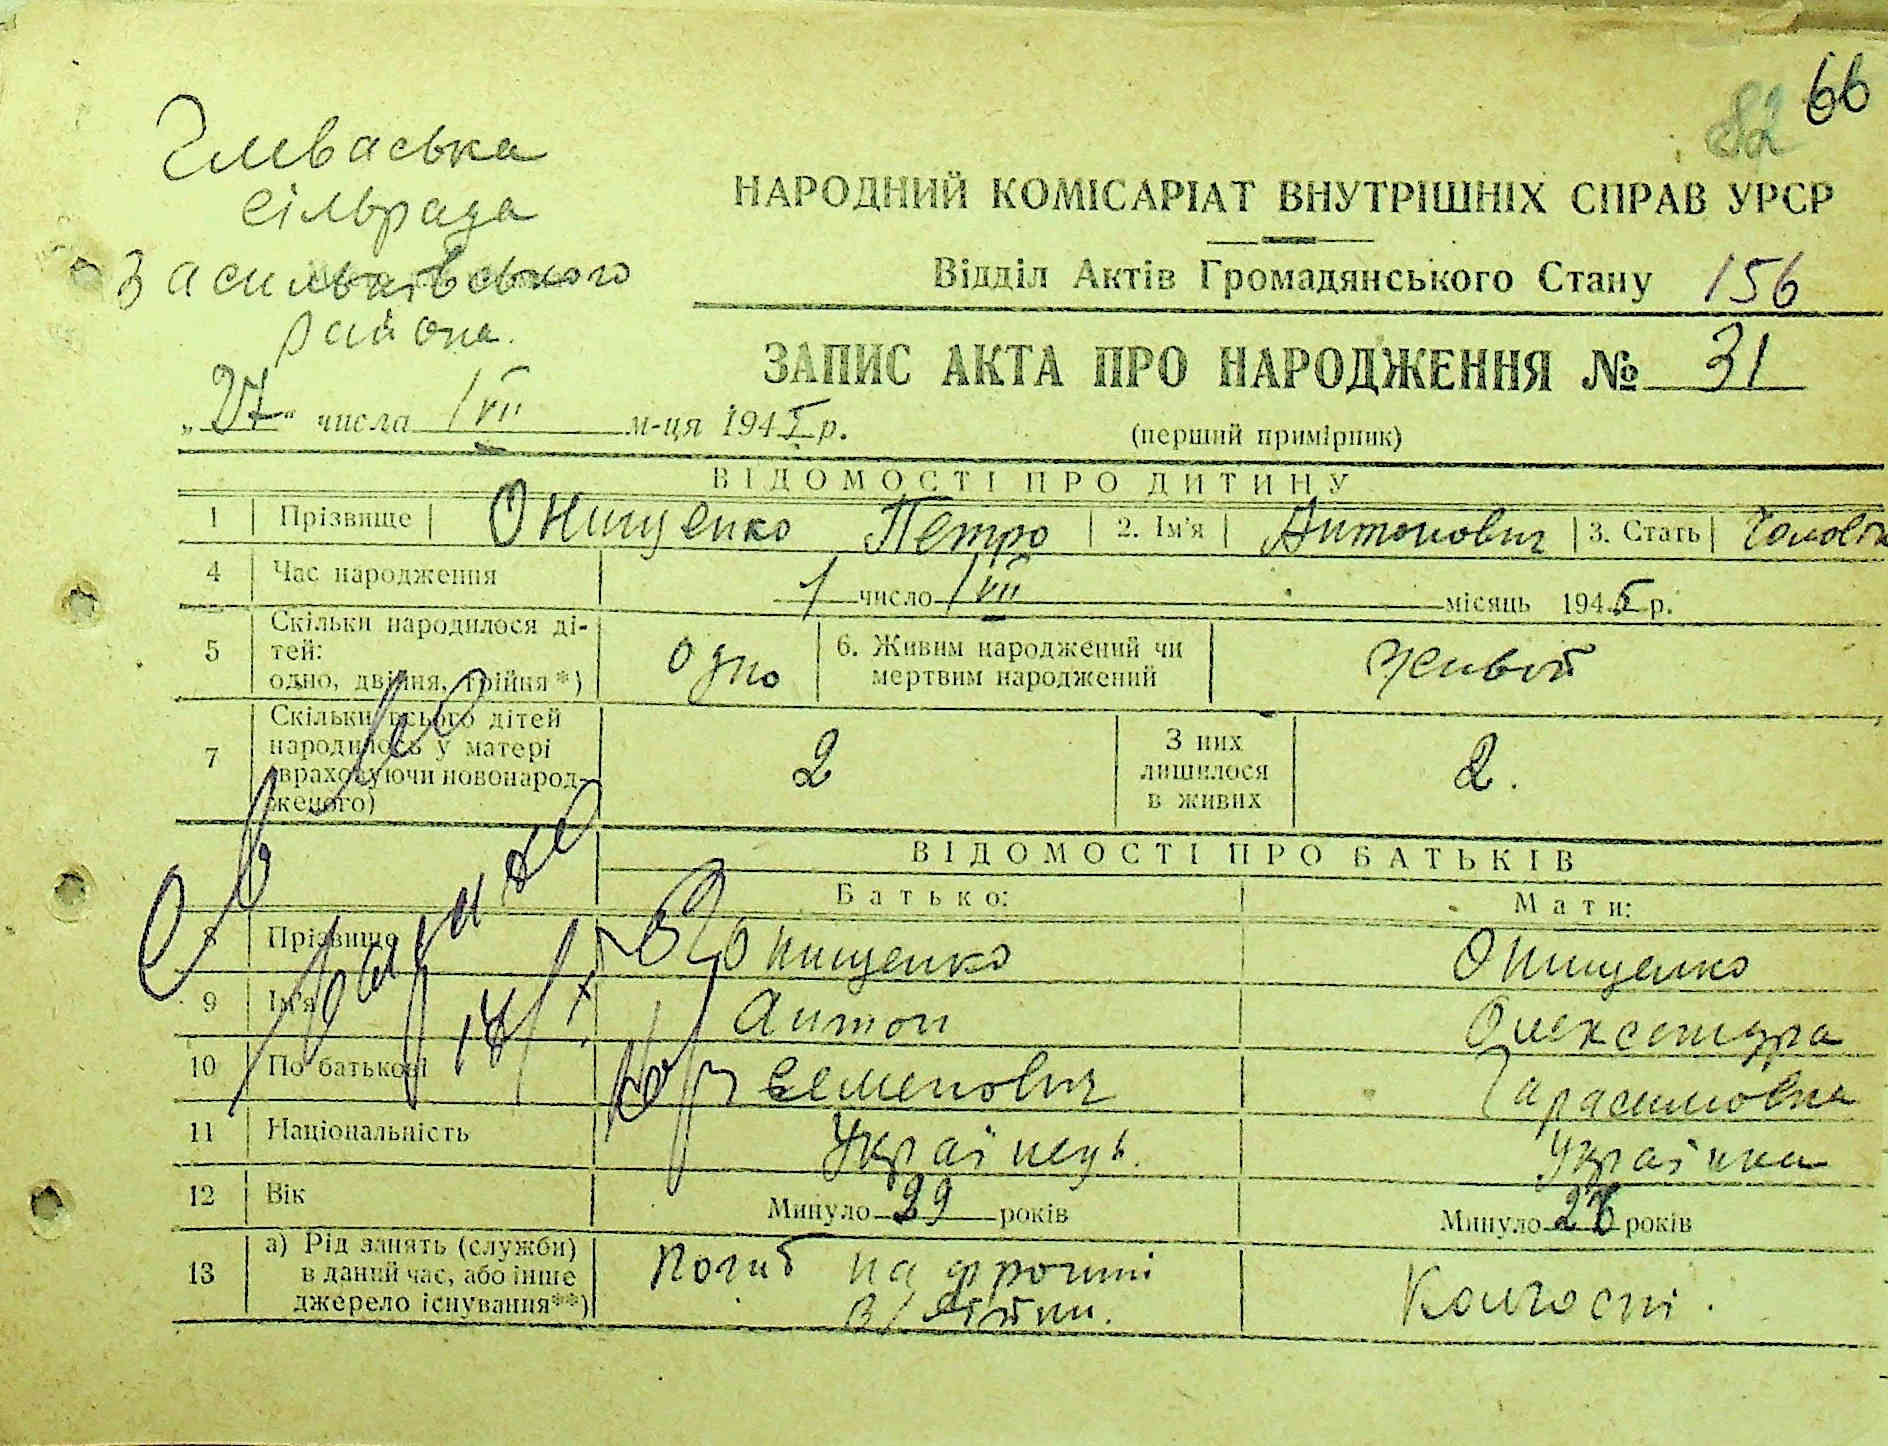 82 66
Глеваська
сільрада
Васильківського
района.
НАРОДНИЙ КОМІСАРІАТ ВНУТРІШНІХ СПРАВ УРСР
Відділ Актів Громадянського Стану 156
ЗАПИС АКТА ПРО НАРОДЖЕННЯ № 31
„27“ числа /VII м-ця 1945 р.
(перший примірник)
ВІДОМОСТІ ПРО ДИТИНУ
1 Прізвище Онищенко Петро 2. Ім'я Антонович 3. Стать Чоловік
4 Час народження 1 число /VII місяць 1945 р.
5 Скільки народилося ді-
тей:
одно, двійня, трійня*) одно 6. Живим народжений чи
мертвим народжений живой
7 Скільки всього дітей
народилось у матері
(враховуючи новонарод-
женого) 2 З них
лишилося
в живих 2.
ВІДОМОСТІ ПРО БАТЬКІВ
Батько: Мати:
8 Прізвище Онищенко Онищенко
9 Ім'я Антон Олександра
10 По батькові Семенович Герасимовна
11 Національність Українець. Українка
12 Вік Минуло 39 років Минуло 26 років
13 а) Рід занять (служби)
в даний час, або інше
джерело існування**) Погиб на фронті
В/ війни. Колгоспі.